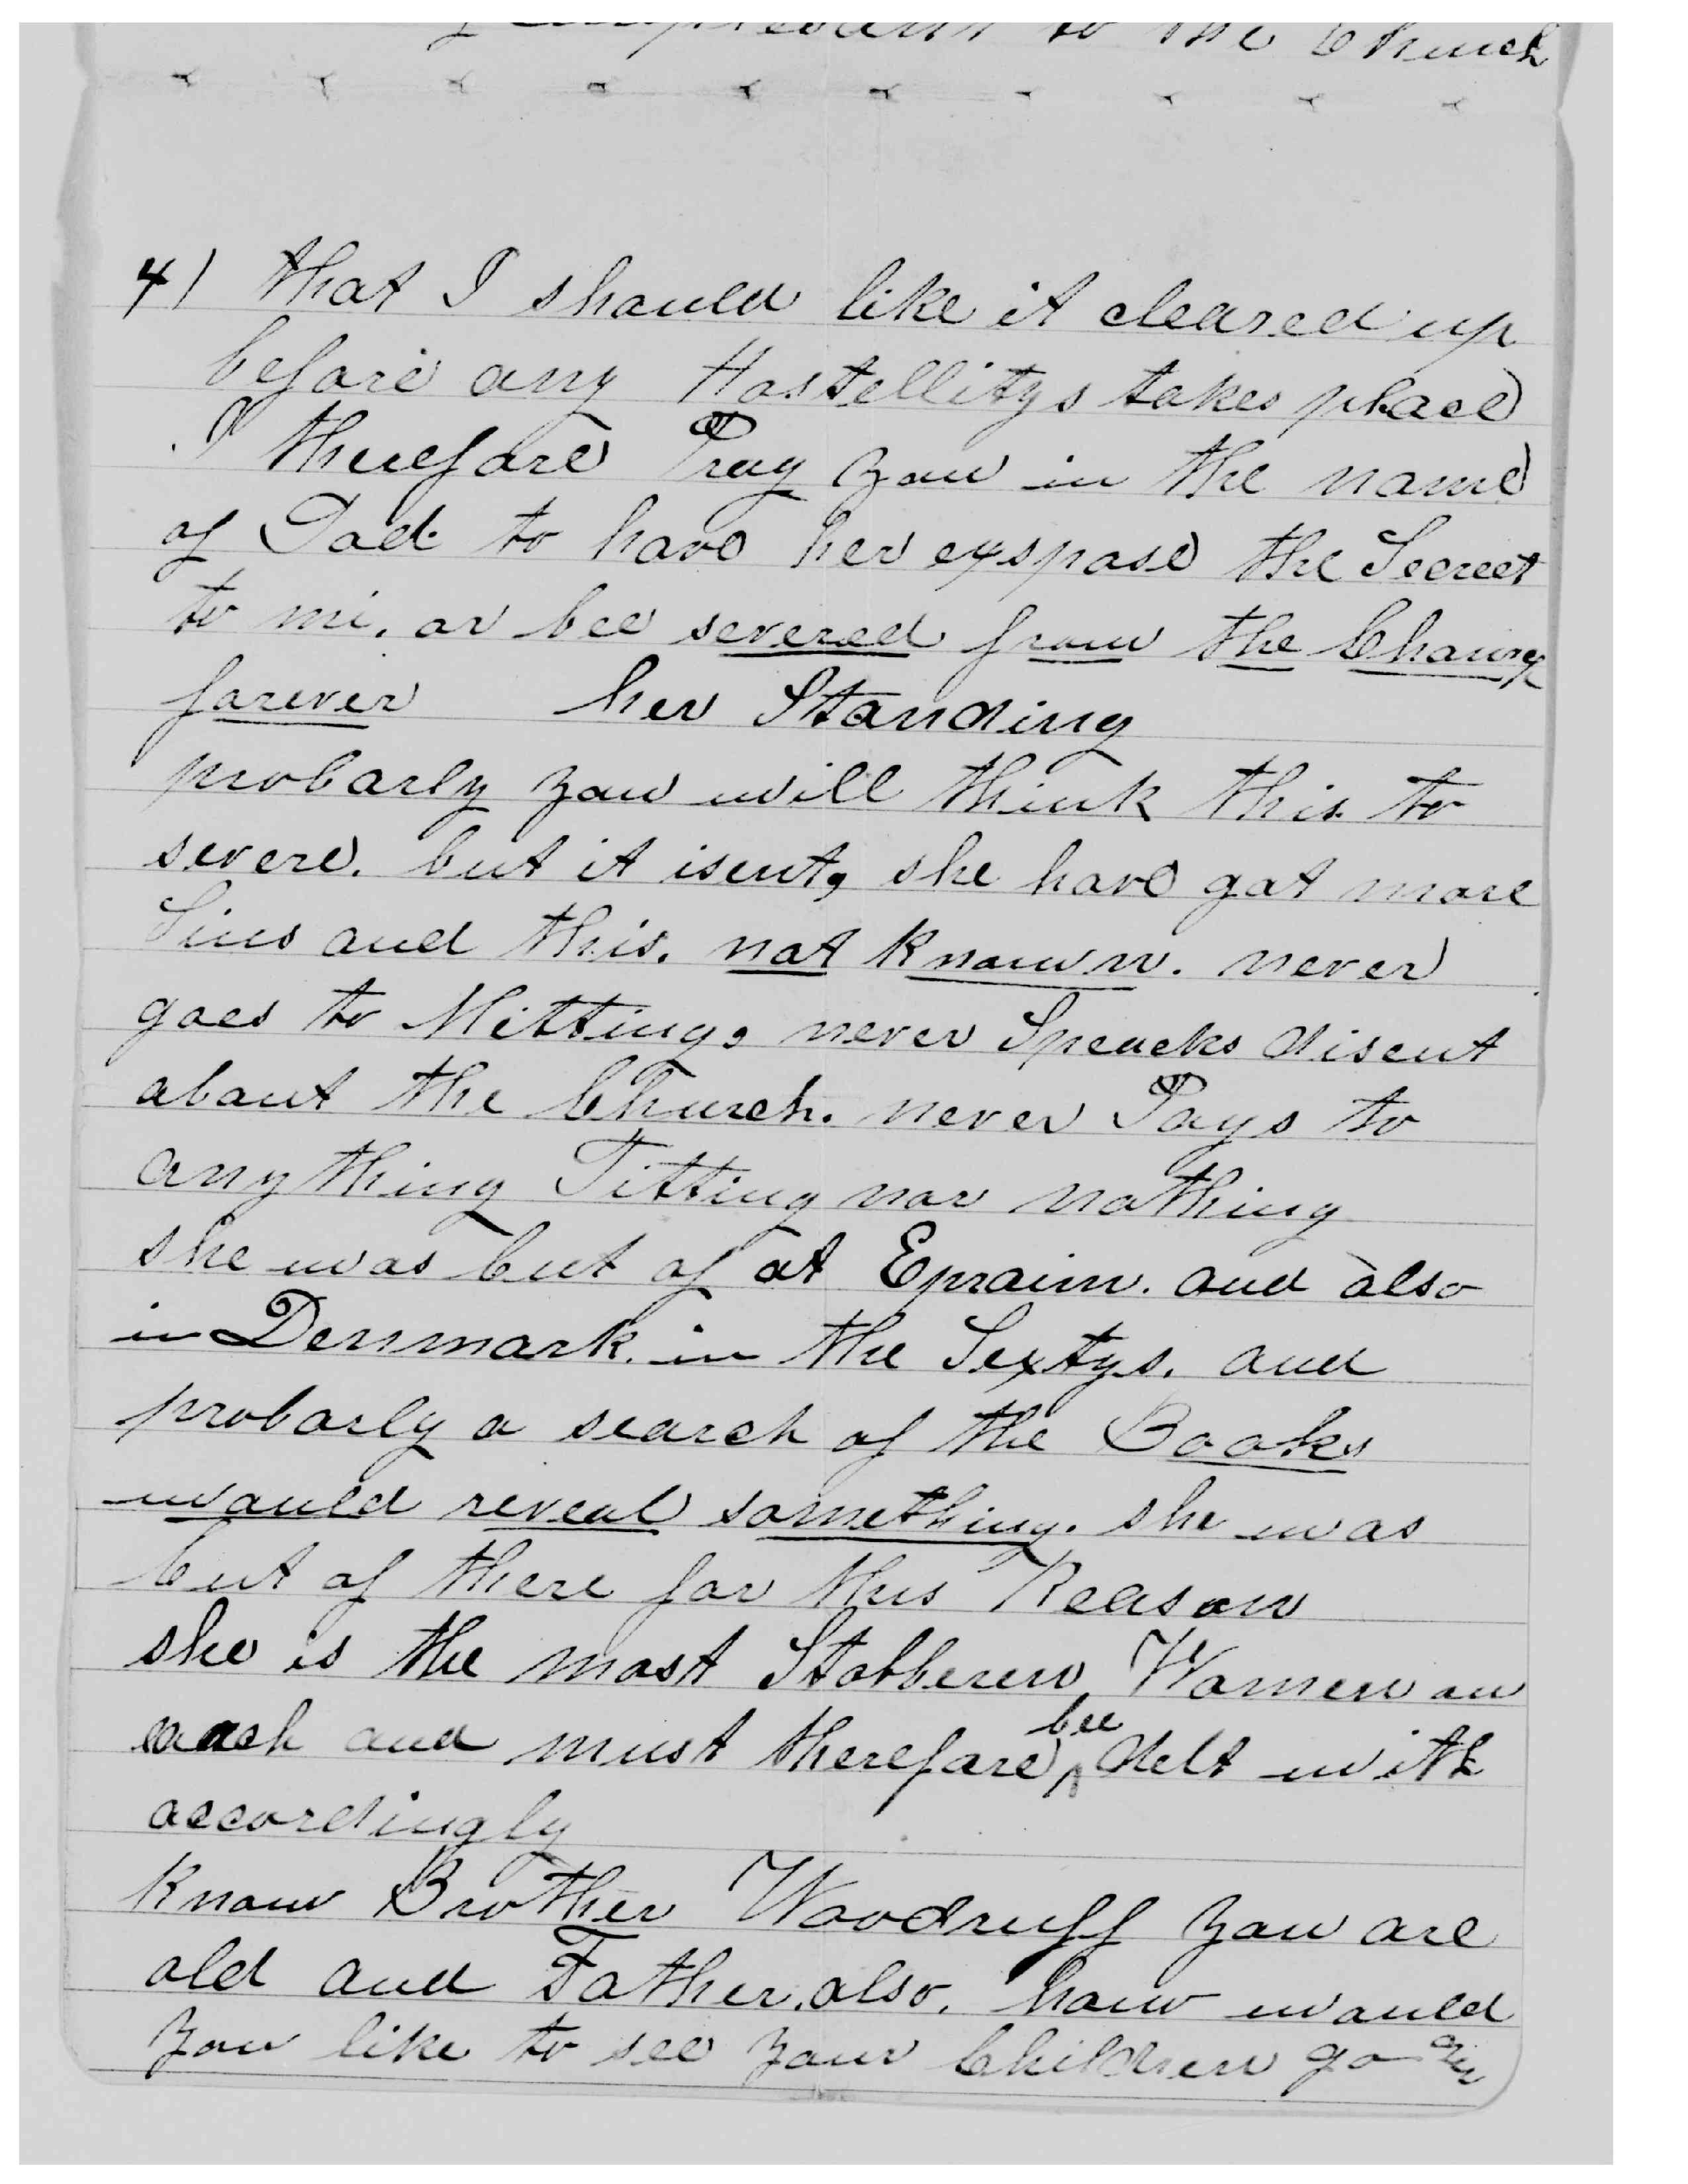 to the Church
4) that I should like it cleared up
before any Hostellitys takes place
I therefore Pray you in the name
of God to have her exspose the Secreet
to mi. or bee severed from the Chourch
forever her Standing
probarly you will think this to
severe. but it isent, she have got more
Sins and this. not knouwn. never
goes to Mitting, never Speacks disent
about the Church. never Pays to
any thing Titting nor nothing
she was cut of at Epraim. and also
in Denmark. in the Sextys. and
probarly a search of the Books
would reveal something. she was
cut of there for this Reason
she is the most Stobberen Women on
each and must therefore bee delt with
accordingly
know Brother Woodruff you are
old and Father. also. houw would
you like to see your Children go on